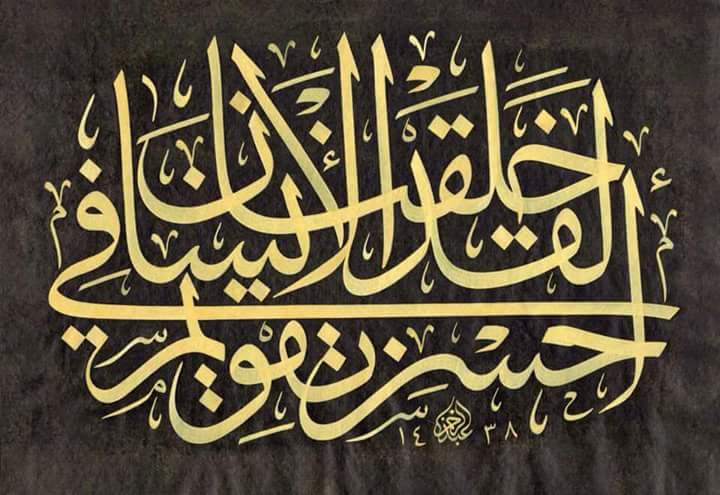 لقد خلقنا الإنسان في
أحسن تقويم
عبدالرحمن ١٤٣٨